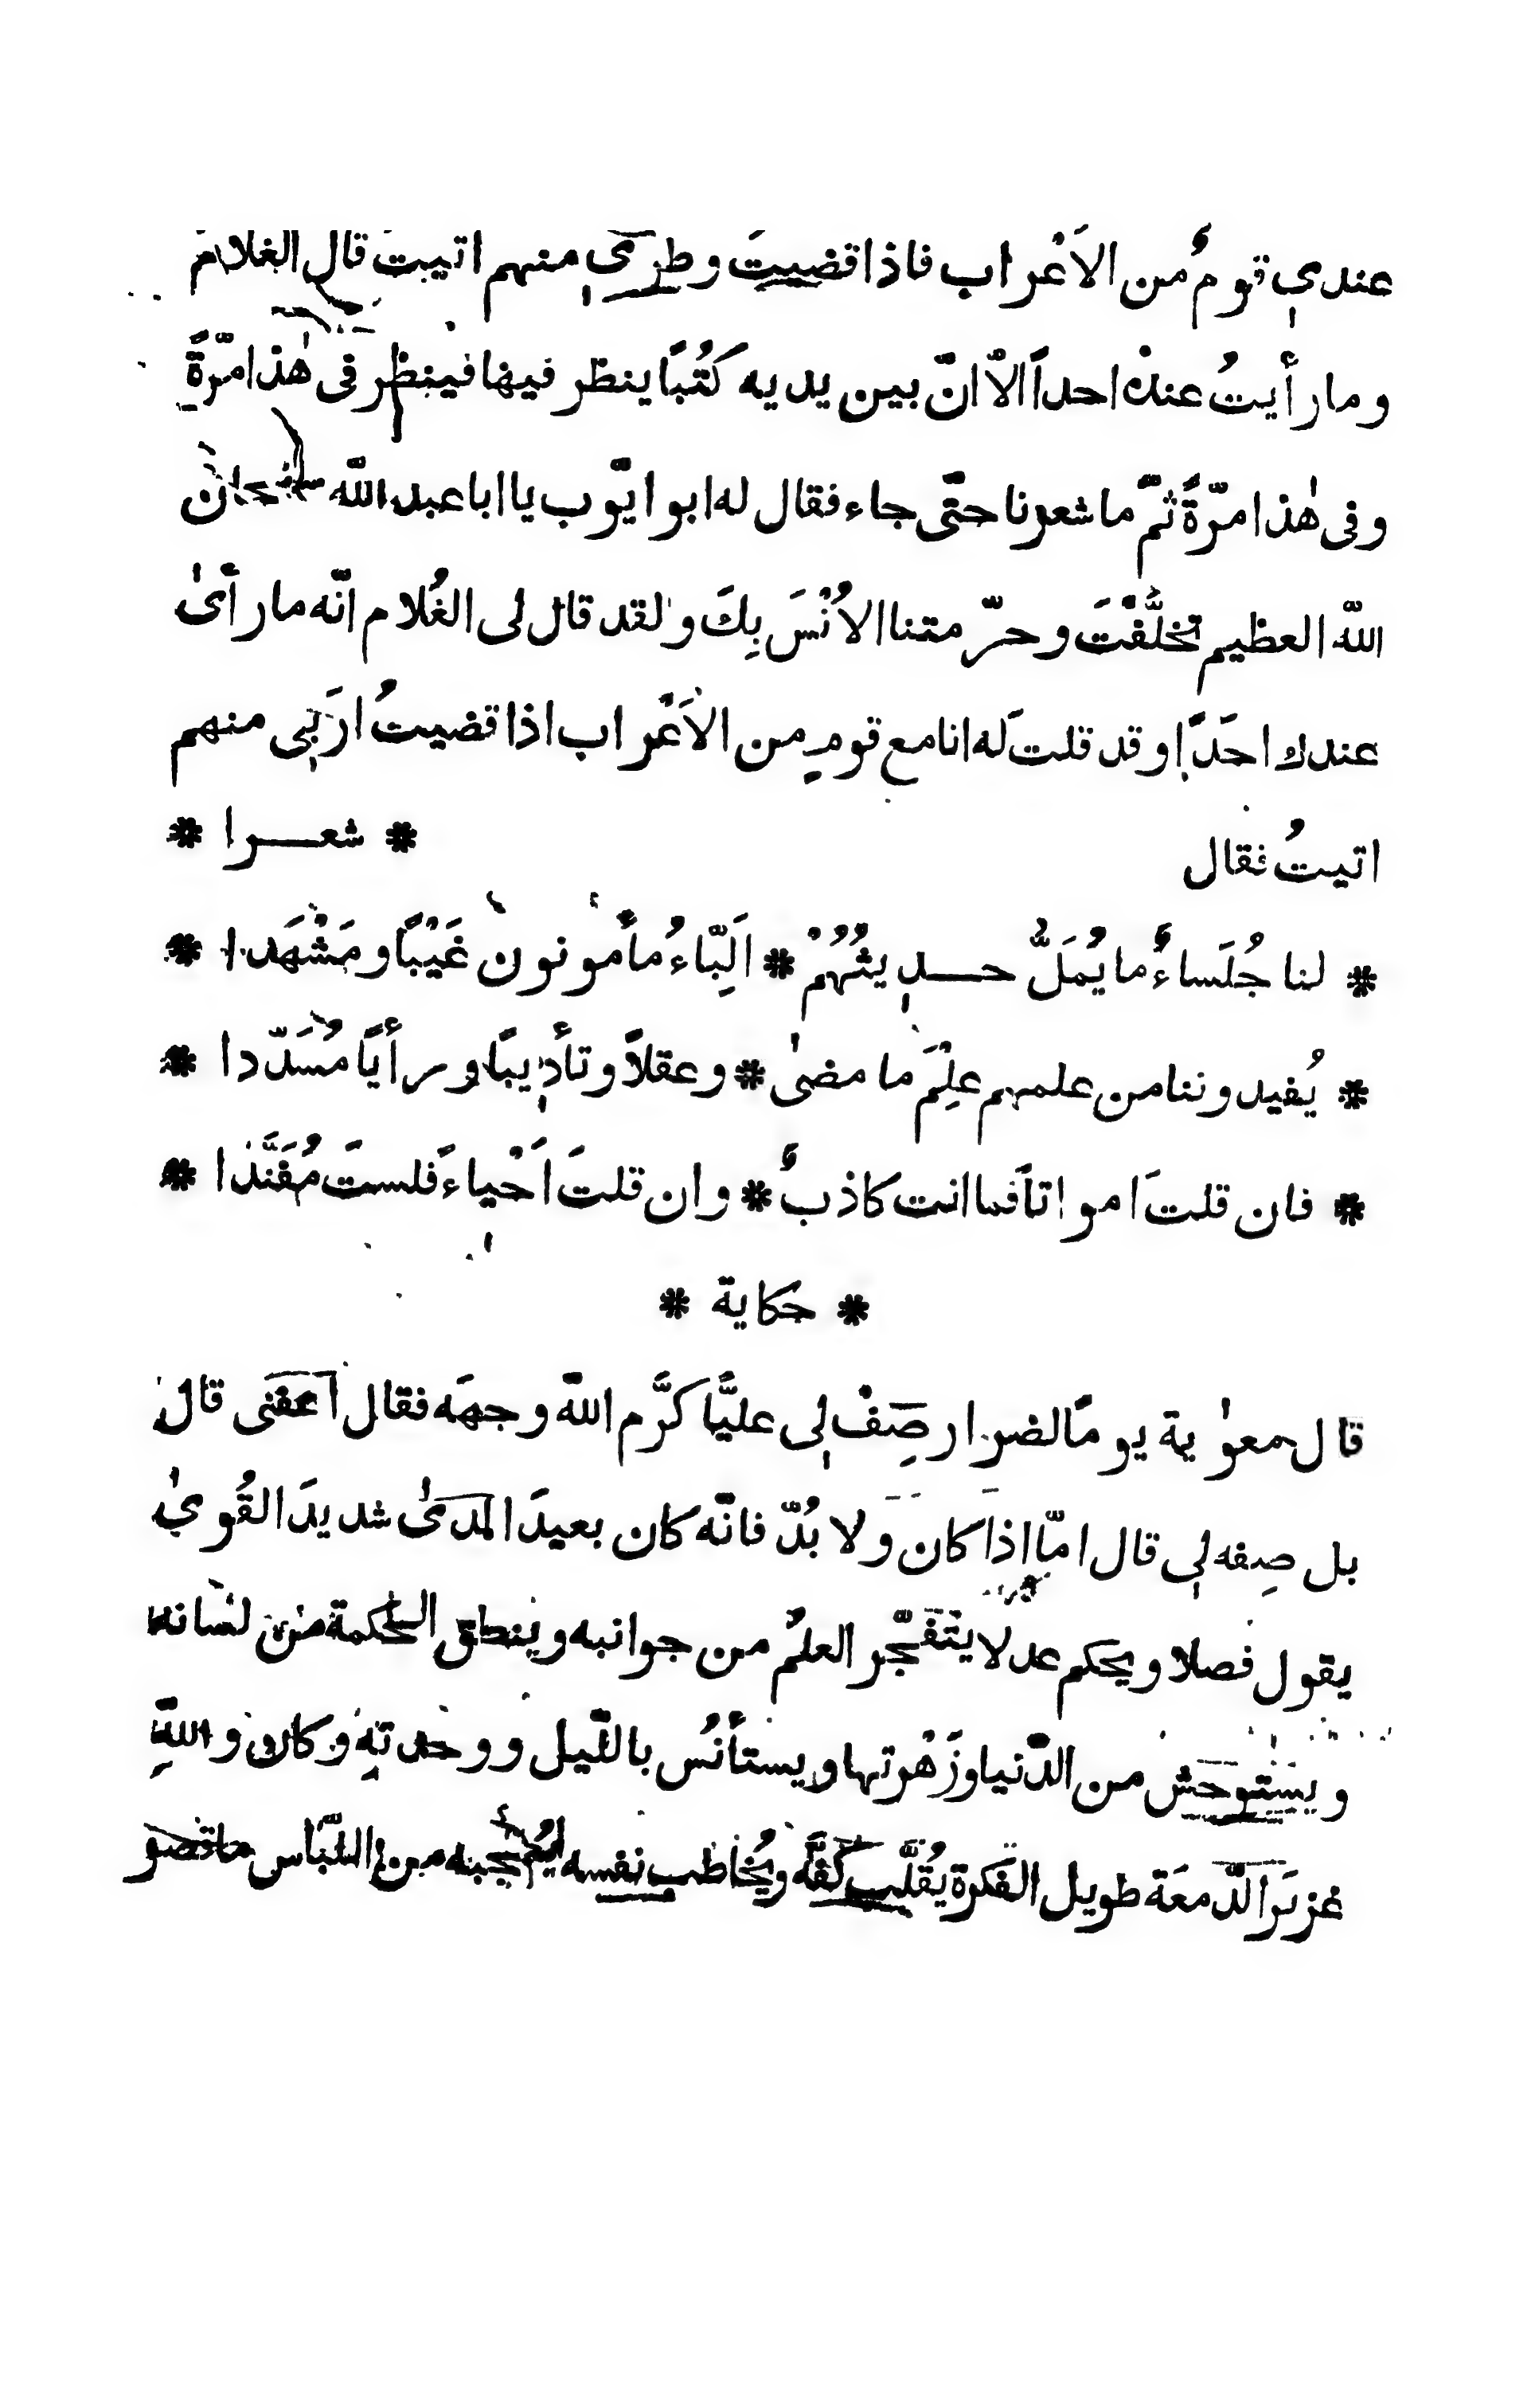 عندي قومٌ من الاَعْراب فاذا قضيتَ وطري منهم اتيتَ قال الغلام
وما رأيتُ عندهْ احداً الاّ انّ بين يديه كُتُبًا ينظر فيها فينظر فى هٰذا مرّةً
وفى هٰذا مرّةً ثمّ ما شعرنا حتّى جاء فقال له ابو ايّوب يا ابا عبد اللّه سبحان
اللّه العظيم تخلَّفْتَ وحرّمتنا الاُنْسَ بِكَ ولقد قال لى الغُلام انّه ما رأىٰ
عندك احَدًا وقد قلتَ له انا مع قومٍ من الاَعْراب اذا قضيتُ ارَبِي منهم
اتيتُ فقال * شعرا *
* لنا جُلَساءٌ ما يُمَلُّ حديثُهُمْ * اَلِبّاءُ مأمونون غَيْبًا ومَشْهَدا *
* يُفيدوننا من علمهم عِلْمَ ما مضىٰ * وعقلاً وتأديبًا ورأيًا مُسَدّدا *
* فان قلتَ امواتاً فما انت كاذبٌ * وان قلتَ اَحْياءً فلستَ مُفَنَّدا *
* حكاية *
قال معوٰية يومًا لضرار صِفْ لى عليًّا كرَّم اللّه وجهَه فقال اعفنى قال
بل صِفه لى قال امّا اذا كان ولا بُدّ فانّه كان بعيدَ المدىٰ شديدَ القُوىٰ
يقول فصلا ويحكم عدلا يتفجّر العلمُ من جوانبه وينطق الحكمة من لسانه
ويستوحش من الدّنيا وزَهْرتها ويستأنُس باللّيل ووحدتِهِ وكان واللّهِ
غزيرَ الدّمعَة طويل الفكرة يُقلّب كفَّه ويُخاطب نفسه يُعجبه من اللّباس ما قصر